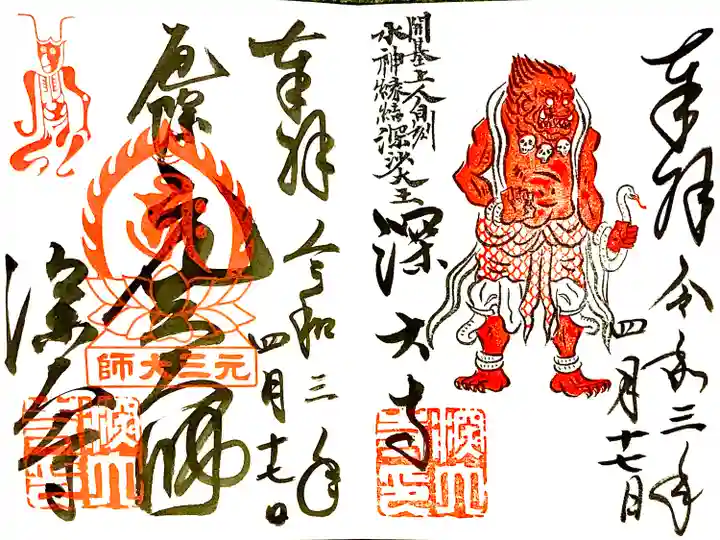 奉拝
令和三年
四月十七日
開基上人自刻
水神縁結深沙大王
深大寺
奉拝
令和三年
四月十七日
厄除
元三大師
師大三元
深大寺